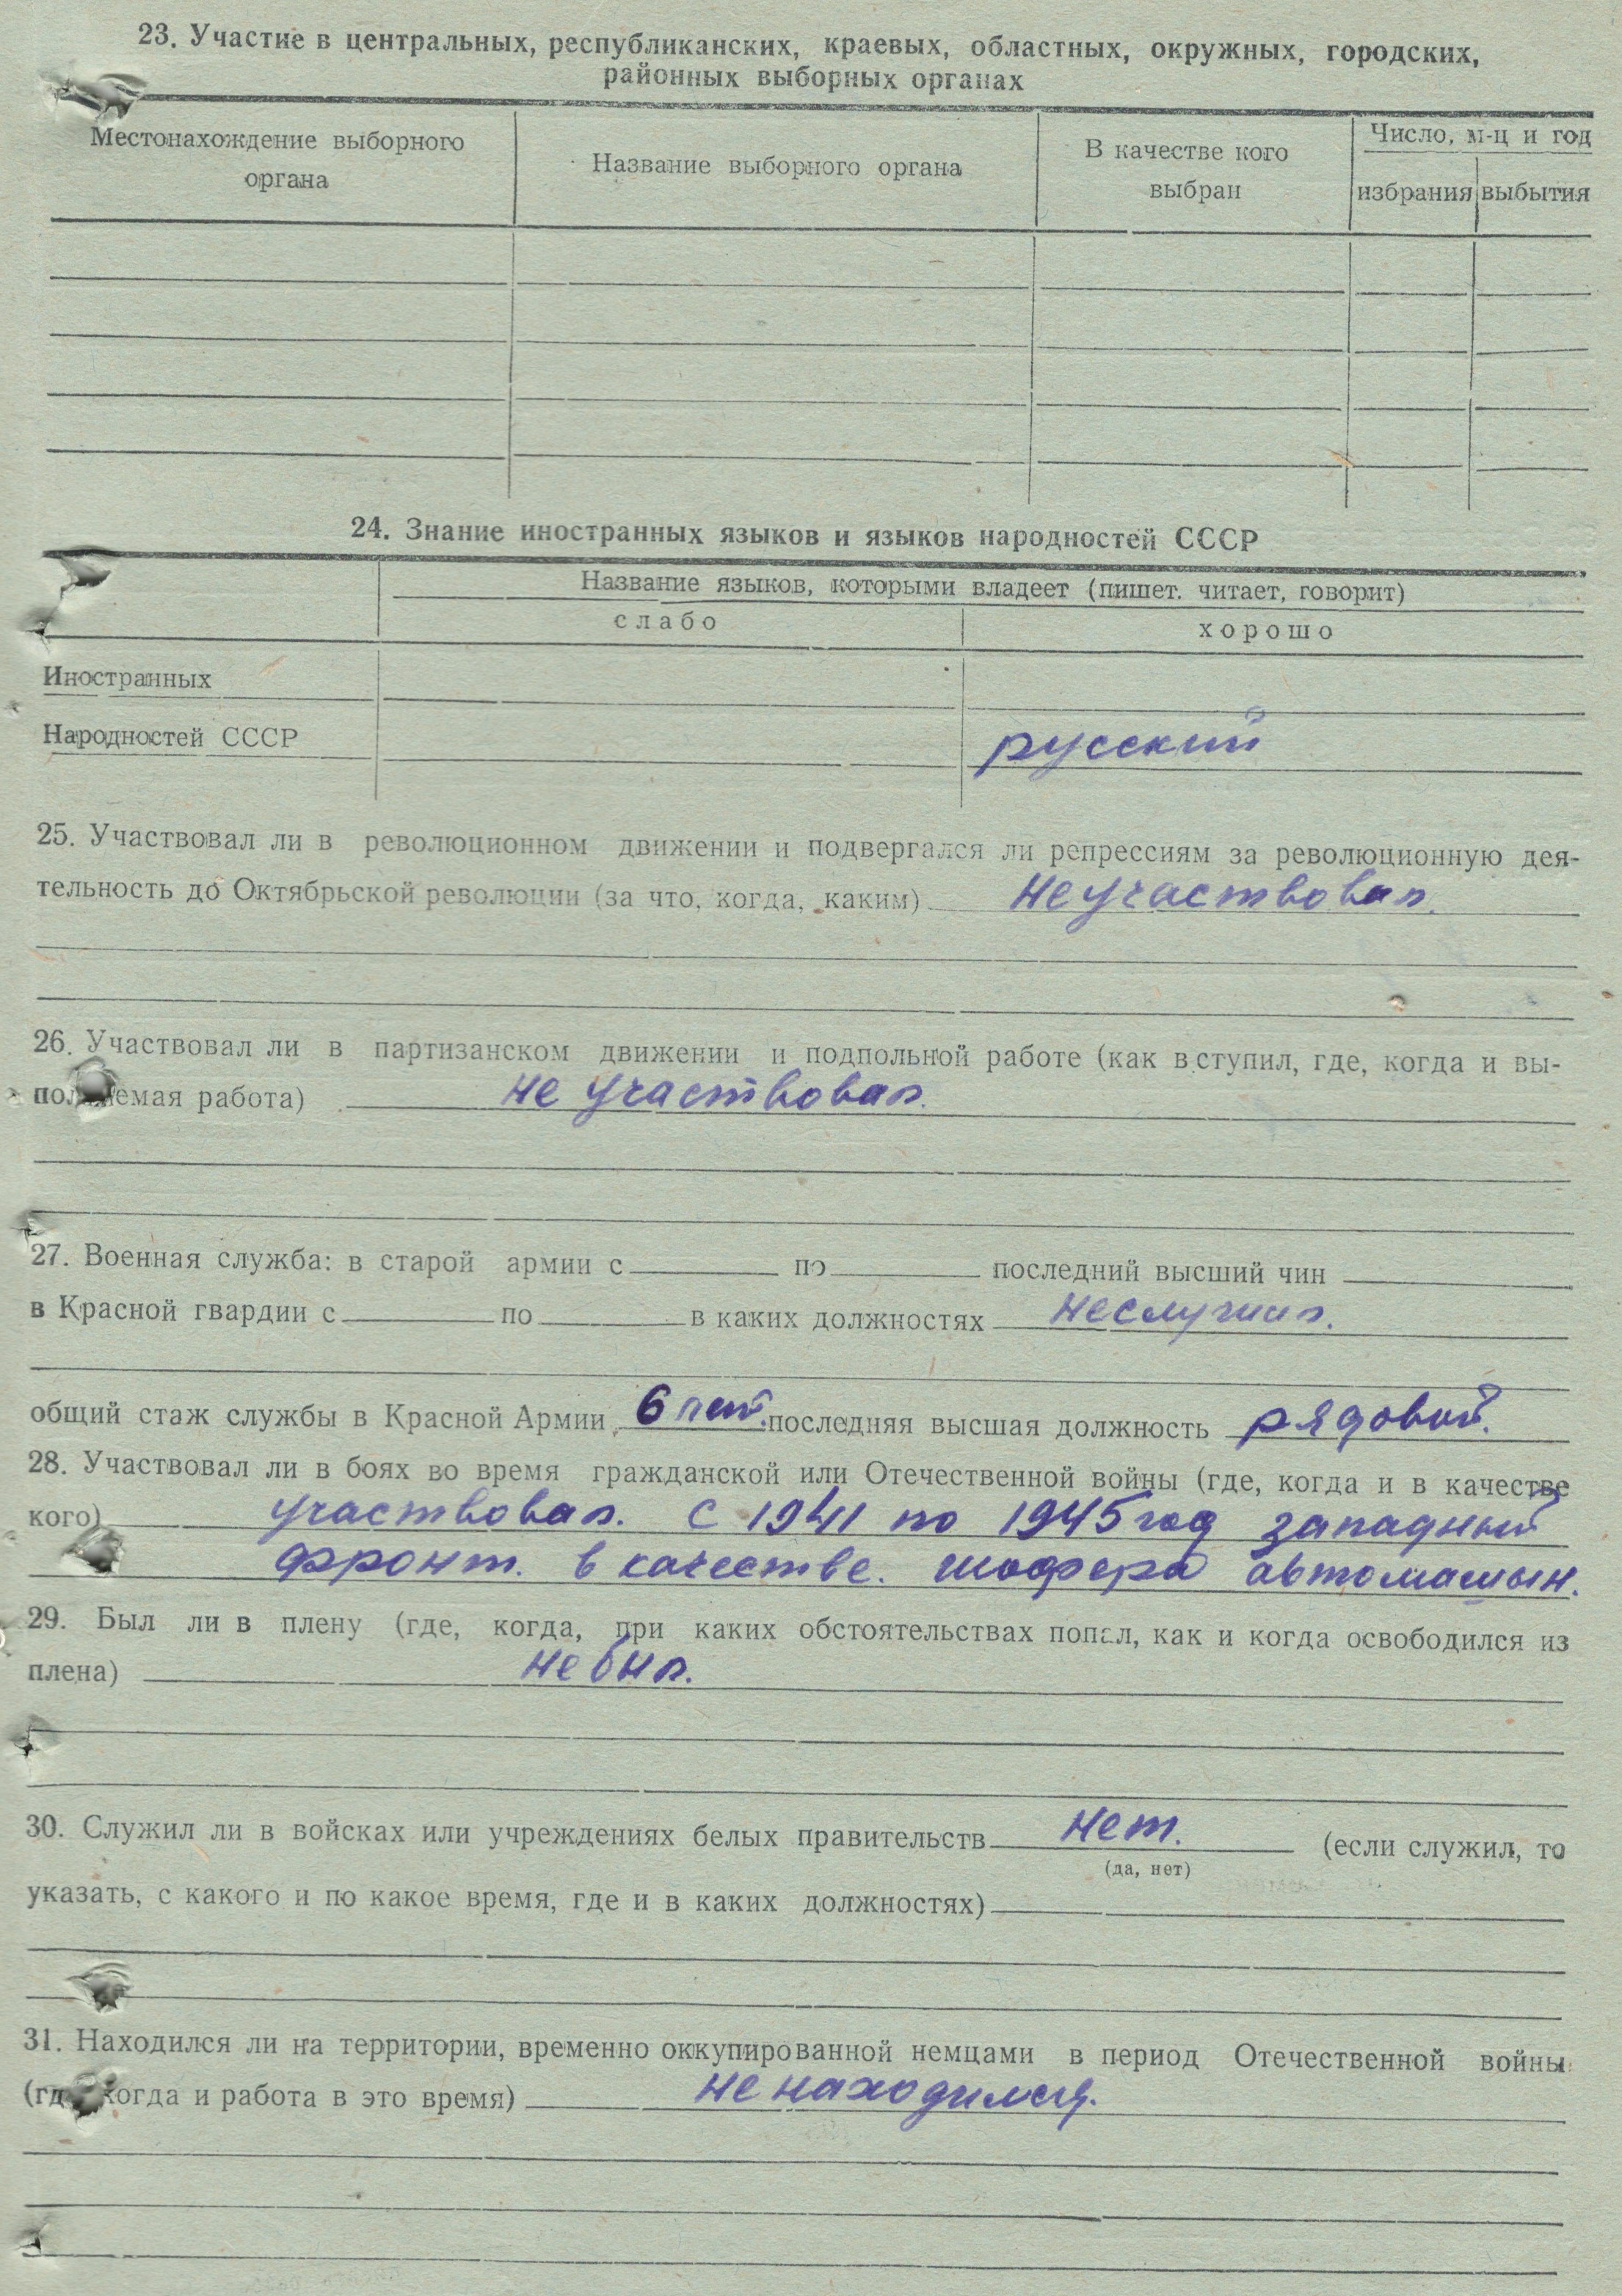 23. Участие в центральных, республиканских, краевых, областных, окружных, городских,
районных выборных органах
Местонахождение выборного органа Название выборного органа В качестве кого выбран Число, м-ц и год
избрания выбытия
24. Знание иностранных языков и языков народностей СССР
Название языков, которыми владеет (пишет. читает, говорит)
слабо хорошо
Иностранных
Народностей СССР русский
25. Участвовал ли в революционном движении и подвергался ли репрессиям за революционную дея-
тельность до Октябрьской революции (за что, когда, каким) не участвовал.
26. Участвовал ли в партизанском движении и подпольной работе (как вступил, где, когда и вы-
полняемая работа) не участвовал.
27. Военная служба: в старой армии с по последний высший чин
в Красной гвардии с по в каких должностях не служил.
общий стаж службы в Красной Армии 6 лет. последняя высшая должность рядовой.
28. Участвовал ли в боях во время гражданской или Отечественной войны (где, когда и в качестве
кого) участвовал. с 1941 по 1945 год западный
фронт. в качестве. шофера автомашын.
29. Был ли в плену (где, когда, при каких обстоятельствах попал, как и когда освободился из
плена) не был.
30. Служил ли в войсках или учреждениях белых правительств нет. (если служил, то
(да, нет)
указать, с какого и по какое время, где и в каких должностях)
31. Находился ли на территории, временно оккупированной немцами в период Отечественной войны
(где, когда и работа в это время) не находился.